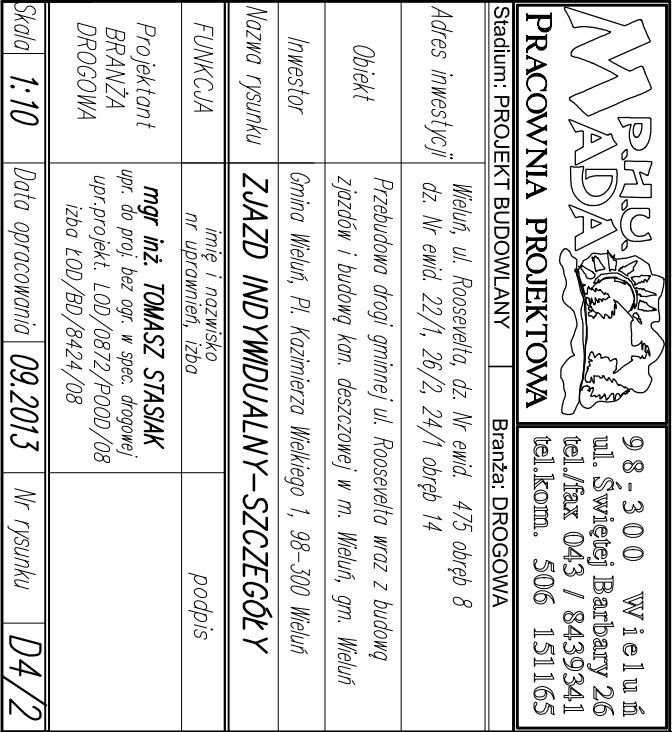 P.H.U.
MADA
PRACOWNIA PROJEKTOWA
98-300 Wieluń
ul. Świętej Barbary 26
tel./fax 043 / 8439341
tel.kom. 506 151165
Stadium: PROJEKT BUDOWLANY
Branża: DROGOWA
Adres inwestycji
Wieluń, ul. Roosevelta, dz. Nr ewid. 475 obręb 8
dz. Nr ewid. 22/1, 26/2, 24/1 obręb 14
Obiekt
Przebudowa drogi gminnej ul. Roosevelta wraz z budową
zjazdów i budową kan. deszczowej w m. Wieluń, gm. Wieluń
Inwestor
Gmina Wieluń, Pl. Kazimierza Wielkiego 1, 98-300 Wieluń
Nazwa rysunku
ZJAZD INDYWIDUALNY-SZCZEGÓŁY
FUNKCJA
imię i nazwisko
nr uprawnień, izba
podpis
Projektant
BRANŻA
DROGOWA
mgr inż. TOMASZ STASIAK
upr. do proj. bez ogr. w spec. drogowej
upr.projekt. LOD/0872/POOD/08
izba ŁOD/BD/8424/08
Skala 1:10 Data opracowania 09.2013 Nr rysunku D4/2